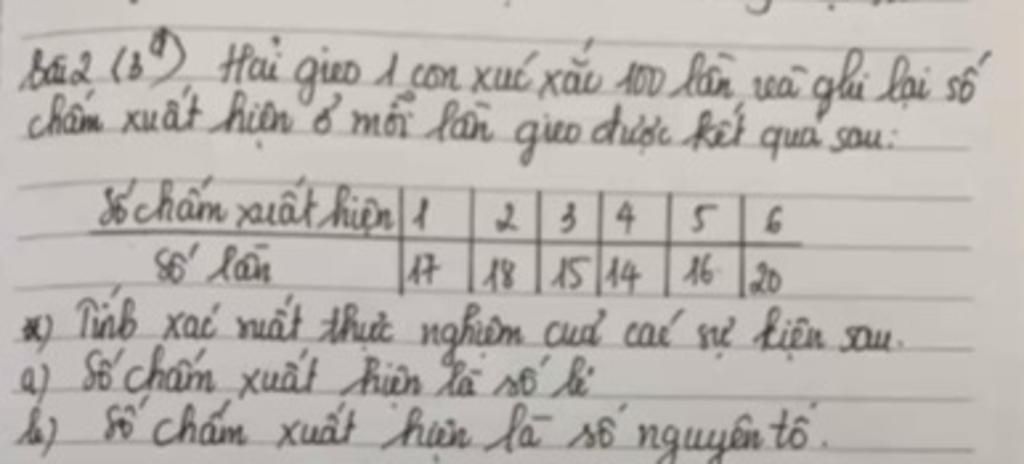 Bài 2 (3đ) Hải gieo 1 con xúc xắc 100 lần và ghi lại số
chấm xuất hiện ở mỗi lần gieo được kết quả sau:
Số chấm xuất hiện 1 2 3 4 5 6
Số lần 17 18 15 14 16 20
*) Tính xác suất thực nghiệm của các sự kiện sau.
a) Số chấm xuất hiện là số lẻ
b) Số chấm xuất hiện là số nguyên tố.